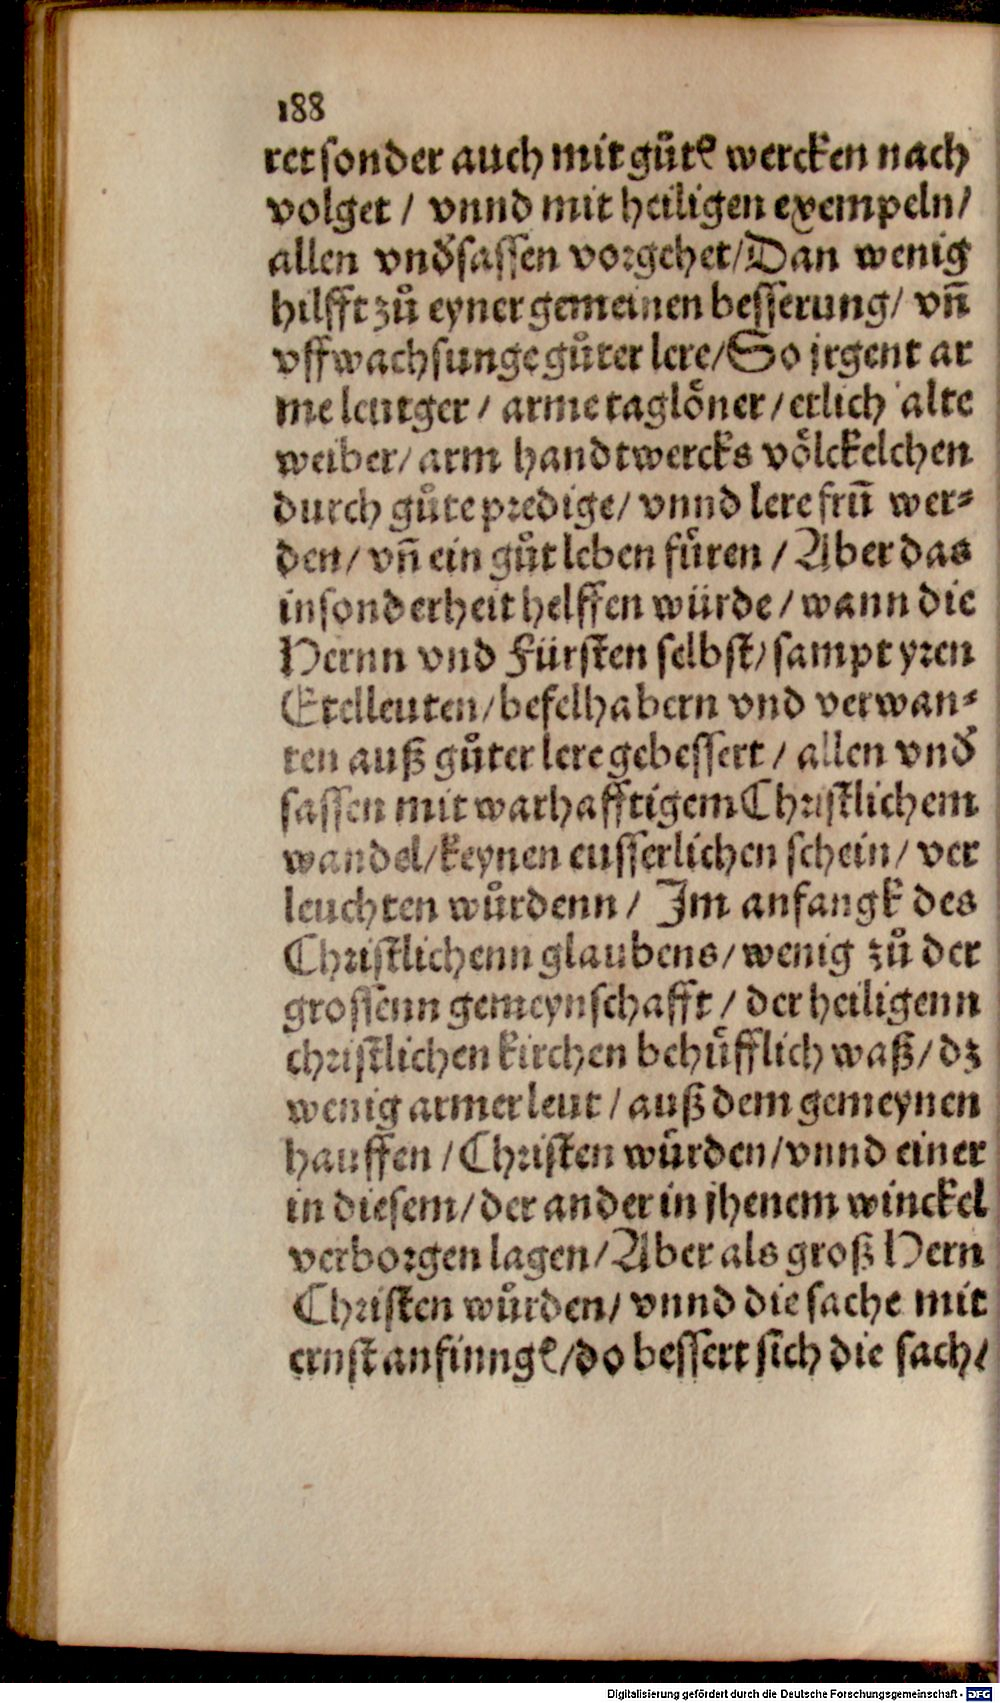 188
ret sonder auch mit gůtẽ wercken nach
volget / vnnd mit heiligen exempeln /
allen vnd̕sassen vorgehet / Dan wenig
hilfft zů eyner gemeinen besserung / vn̄
vffwachsunge gůter lere / So jrgent ar
me leutger / arme taglöner / etlich alte
weiber / arm handtwercks völckelchen
durch gůte predige / vnnd lere frū wer⸗
den / vn̄ ein gůt leben füren / Aber das
insonderheit helffen würde / wann die
Hernn vnd Fürsten selbst / sampt yren
Etelleuten / befelhabern vnd verwan⸗
ten auß gůter lere gebessert / allen vnd̕
sassen mit warhafftigem Christlichem
wandel / keynen eusserlichen schein / ver
leuchten wůrdenn / Im anfangk des
Christlichenn glaubens / wenig zů der
grossenn gemeynschafft / der heiligenn
christlichen kirchen behüfflich waß / dz
wenig armer leut / auß dem gemeynen
hauffen / Christen würden / vnnd einer
in diesem / der ander in jhenem winckel
verborgen lagen / Aber als groß Hern
Christen wůrden / vnnd die sache mit
ernst anfinngẽ / do bessert sich die sach /
Digitalisierung gefördert durch die Deutsche Forschungsgemeinschaft - DFG